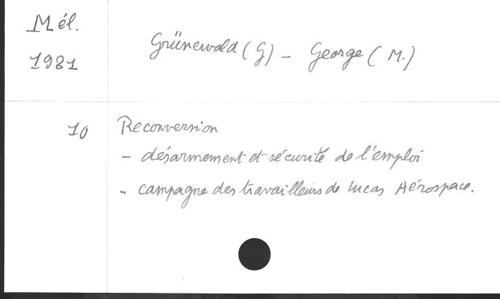 Mél.
1981
Grünewald (G) - George (M.)
10
Reconversion
- désarmement et sécurité de l'emploi
- campagne des travailleurs de lucas Aérospace.